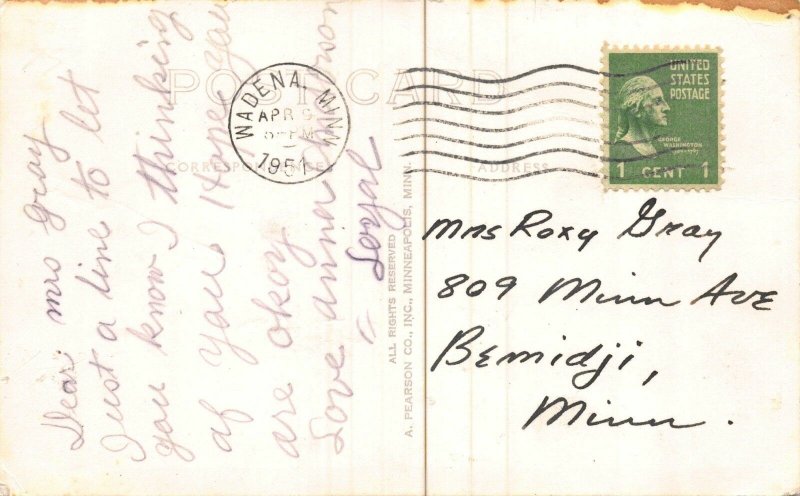 POST CARD
CORRESPONDENCE
ADDRESS
WADENA, MINN
APR 9
PM
1951
UNITED
STATES
POSTAGE
GEORGE
WASHINGTON
1 CENT 1
Dear mrs Gray
Just a line to let
you know I thinking
of you. Hope you
are okoy
Love anna
= Loyal
ALL RIGHTS RESERVED
A. PEARSON CO., INC., MINNEAPOLIS, MINN.
Mrs Roxy Gray
809 Minn Ave
Bemidji,
Minn.